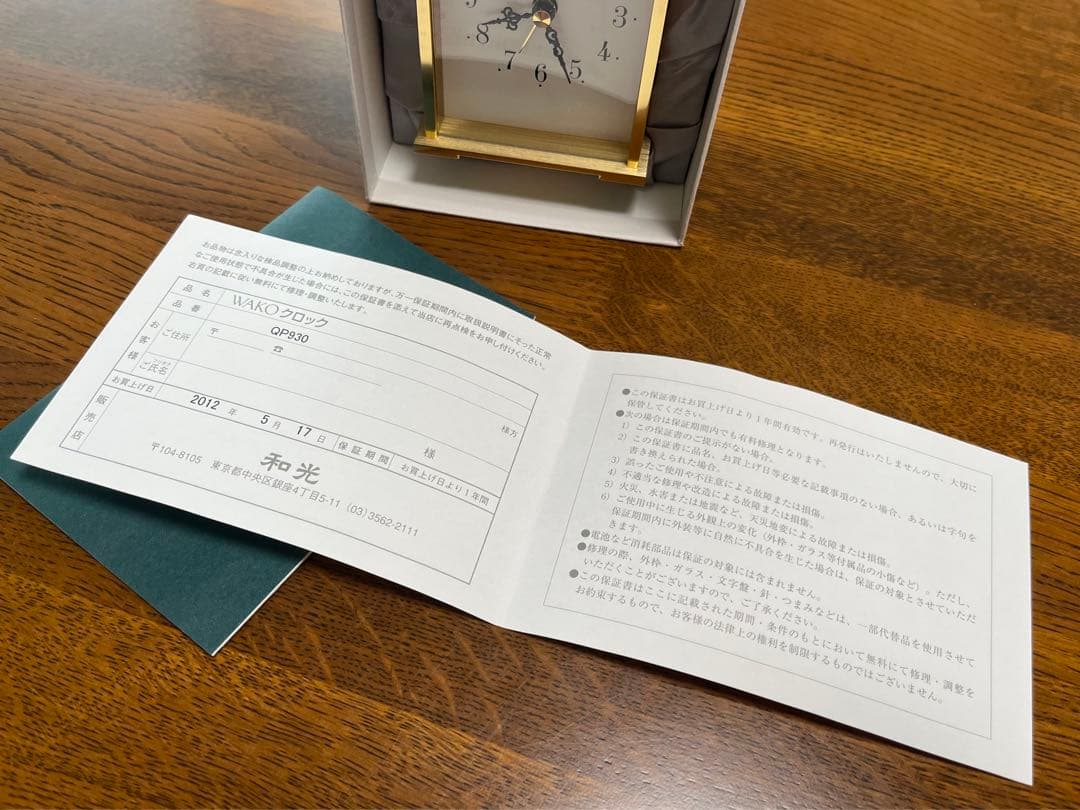 3
8
4
7
6
5
お品物は念入りな検品調整の上お納めしておりますが、万一保証期間内に取扱説明書にそった正常
なご使用状態で不具合が生じた場合には、この保証書を添えて当店に再点検をお申し付けください。
右頁の記載に従い無料にて修理・調整いたします。
品名 WAKO クロック
品番 QP930
お客様
ご住所 〒
☎
様方
フリガナ
ご氏名
様
お買上げ日 2012 年 5 月 17 日 保証期間 お買上げ日より1年間
販売店
和光
〒104-8105 東京都中央区銀座4丁目5-11 (03)3562-2111
●この保証書はお買上げ日より1年間有効です。再発行はいたしませんので、大切に
保管してください。
●次の場合は保証期間内でも有料修理となります。
1）この保証書のご提示がない場合。
2）この保証書に品名、お買上げ日等必要な記載事項のない場合、あるいは字句を
書き換えられた場合。
3）誤ったご使用や不注意による故障または損傷。
4）不適当な修理や改造による故障または損傷。
5）火災、水害または地震など、天災地変による故障または損傷。
6）ご使用中に生じる外観上の変化（外枠・ガラス等付属品の小傷など）。ただし、
保証期間内に外装等に自然に不具合を生じた場合は、保証の対象とさせていただ
きます。
●電池など消耗部品は保証の対象には含まれません。
●修理の際、外枠・ガラス・文字盤・針・つまみなどは、一部代替品を使用させて
いただくことがございますので、ご了承ください。
●この保証書はここに記載された期間・条件のもとにおいて無料にて修理・調整を
お約束するもので、お客様の法律上の権利を制限するものではございません。